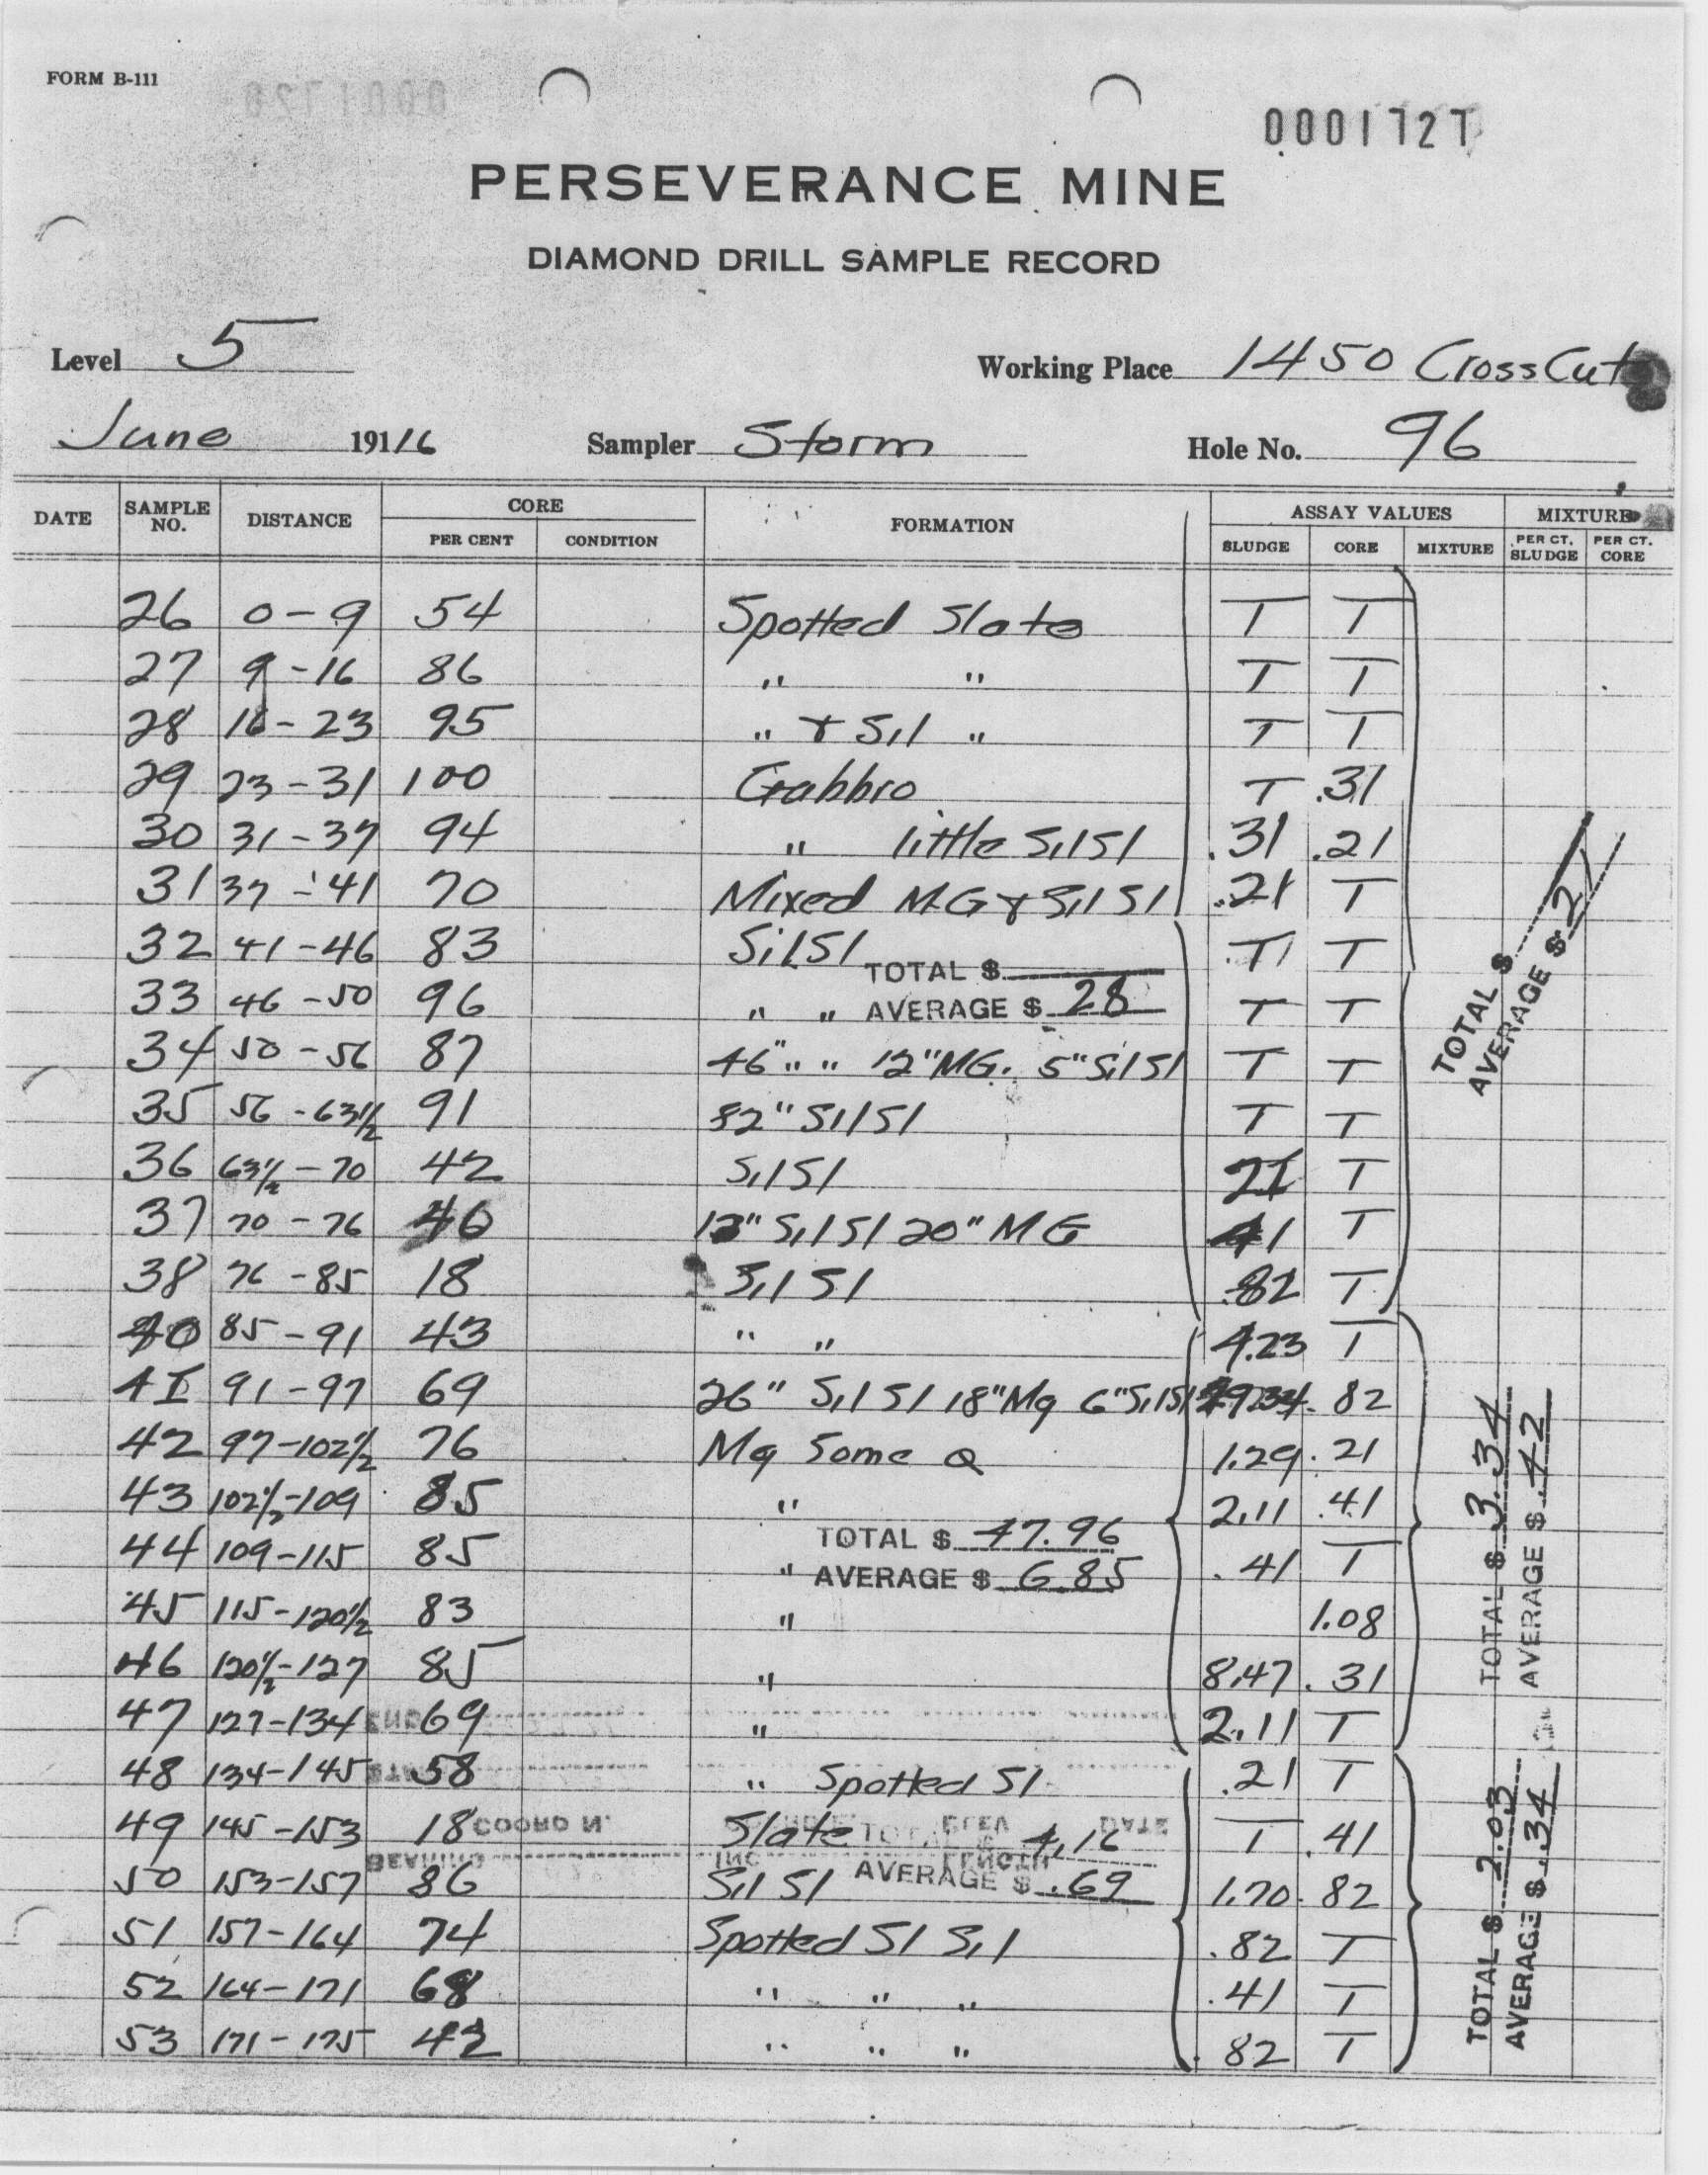 FORM B-111
0001727
PERSEVERANCE MINE
DIAMOND DRILL SAMPLE RECORD
Level 5 Working Place 1450 CrossCut
June 191 16 Sampler Storm Hole No. 96
DATE SAMPLE NO. DISTANCE CORE PER CENT CONDITION FORMATION ASSAY VALUES SLUDGE CORE MIXTURE MIXTURE PER CT. SLUDGE PER CT. CORE
26 0-9 54 Spotted Slate T T
27 9-16 86 " " T T
28 16-23 95 " & Sil " T T
29 23-31 100 Gabbro T .31
30 31-37 94 " little Sil Sl .31 .21
31 37-41 70 Mixed M.G & Sil Sl .21 T
32 41-46 83 Sil Sl TOTAL $ T T
33 46-50 96 " " AVERAGE $ .28 T T
34 50-56 87 46" " " 12" MG. 5" Sil Sl T T
35 56-63½ 91 82" Sil Sl T T
36 63½-70 42 Sil Sl 21 T
37 70-76 46 13" Sil Sl 20" MG 41 T
38 76-85 18 Sil Sl .82 T
TOTAL $
AVERAGE $ .21
40 85-91 43 " " 4.23 T
41 91-97 69 26" Sil Sl 18" Mg 6" Sil Sl 29.34 .82
42 97-102½ 76 Mg Some Q 1.29 .21
43 102½-109 85 " 2.11 .41
44 109-115 85 " TOTAL $ 47.96 .41 T
AVERAGE $ 6.85
45 115-120½ 83 " 1.08
46 120½-127 85 " 8.47 .31
47 127-134 69 " 2.11 T
TOTAL $ 3.34
AVERAGE $ .42
48 134-145 58 " Spotted Sl .21 T
49 145-153 18 Slate TOTAL $ 4.16 T .41
50 153-157 86 Sil Sl AVERAGE $ .69 1.70 .82
51 157-164 74 Spotted Sl Sil .82 T
52 164-171 68 " " " .41 T
53 171-175 42 " " " .82 T
TOTAL $ 2.03
AVERAGE $ .34